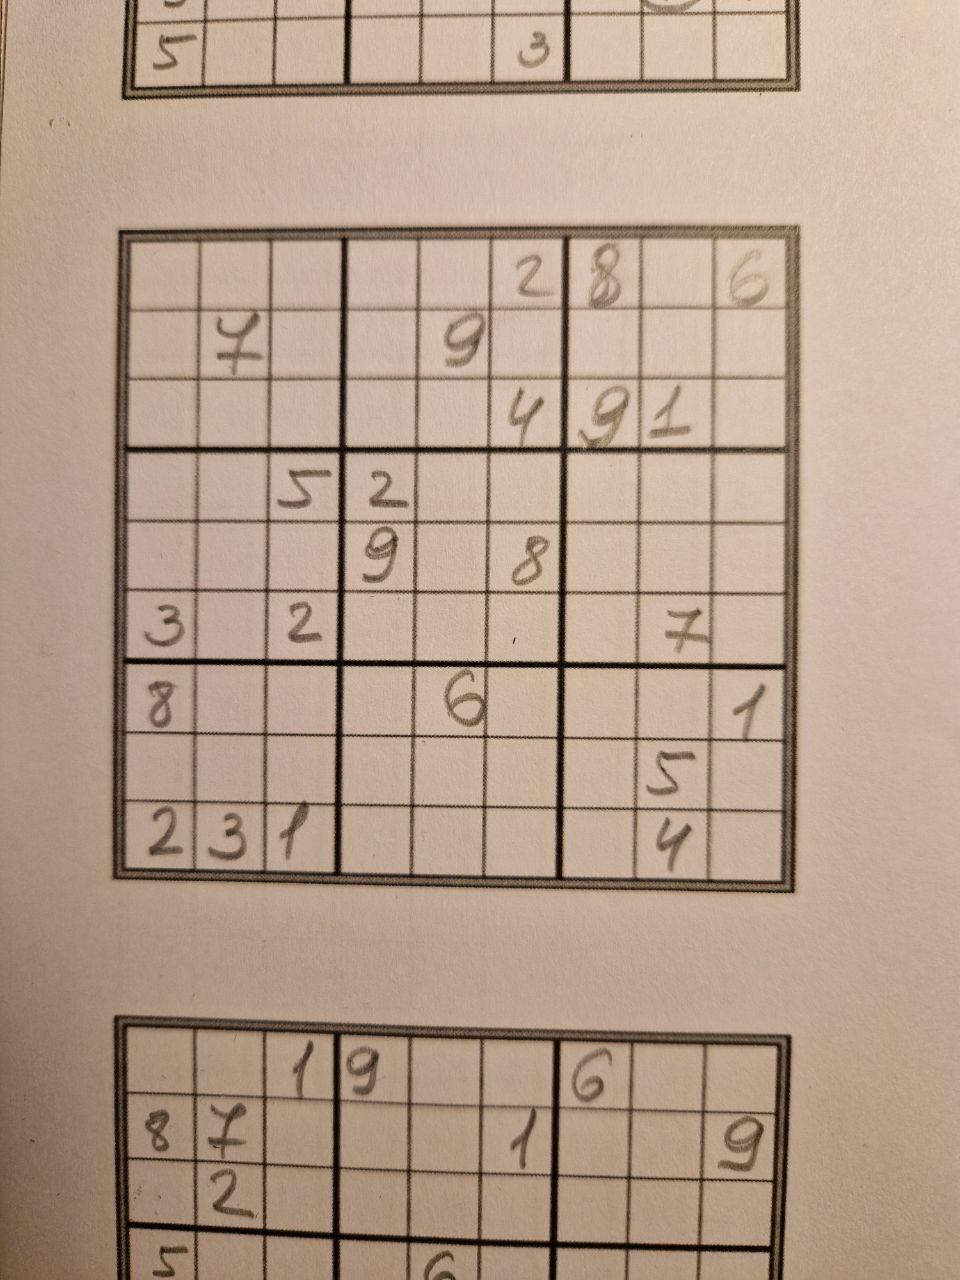 5 3
2 8 6
7 9
4 9 1
5 2
9 8
3 2 7
8 6 1
5
2 3 1 4
1 9 6
8 7 1 9
2
5 6